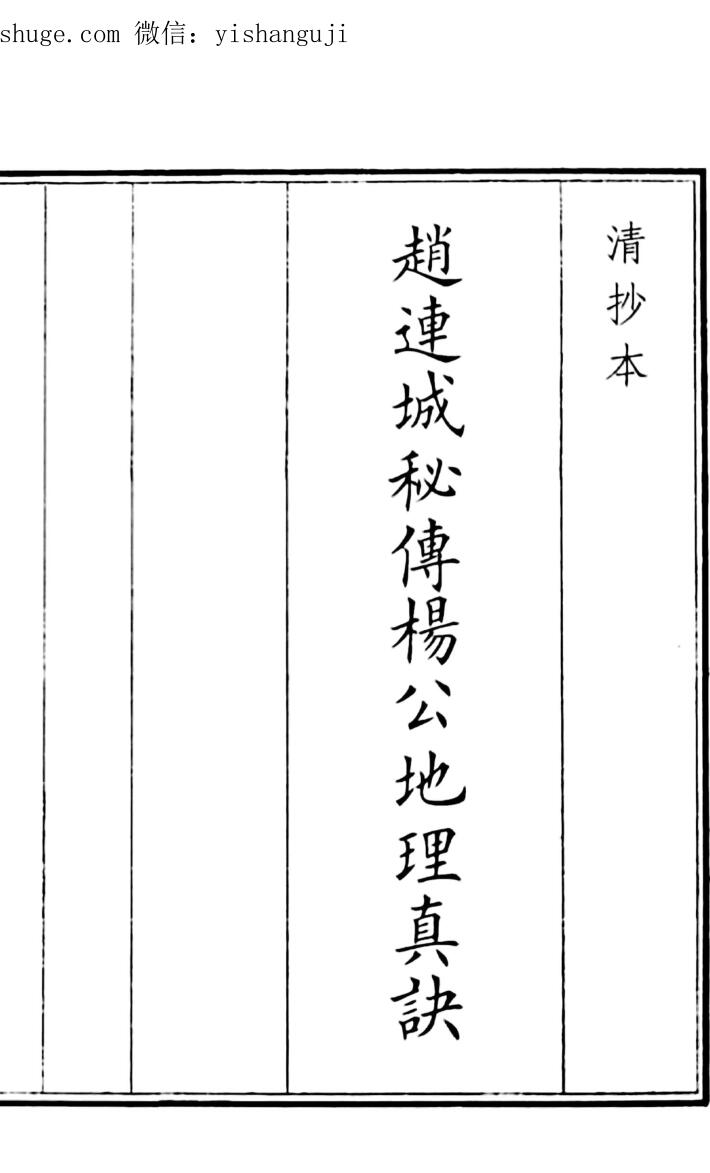 shuge.com 微信：yishanguji
清抄本
趙連城秘傳楊公地理真訣